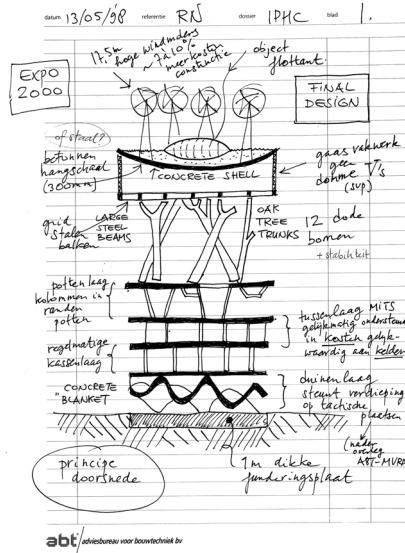 datum 13/05/98 referentie RN dossier IPHC blad 1.
17,5m hoge windmolens
~ 7 à 10%
meerkosten
constructie
object
flottant.
EXPO
2000
FINAL
DESIGN
of staal?
betonnen
hangschaal
(300mm)
↑CONCRETE SHELL
gaas vakwerk
geen
domme V's
(SVP)
grid
stalen
balken
LARGE
STEEL
BEAMS
OAK
TREE
TRUNKS
12 dode
bomen
+ stabiliteit
pottenlaag
kolommen in
randen
potten
tussenlaag MITS
gelijkmatig ondersteund
in kosten gelijk-
waardig aan kelder
regelmatige
kassenlaag
CONCRETE
"BLANKET"
duinenlaag
steunt verdieping
op tactische
plaatsen
(nader
overleg
ABT-MVRDV
principe
doorsnede
1m dikke
funderingsplaat
abt adviesbureau voor bouwtechniek bv